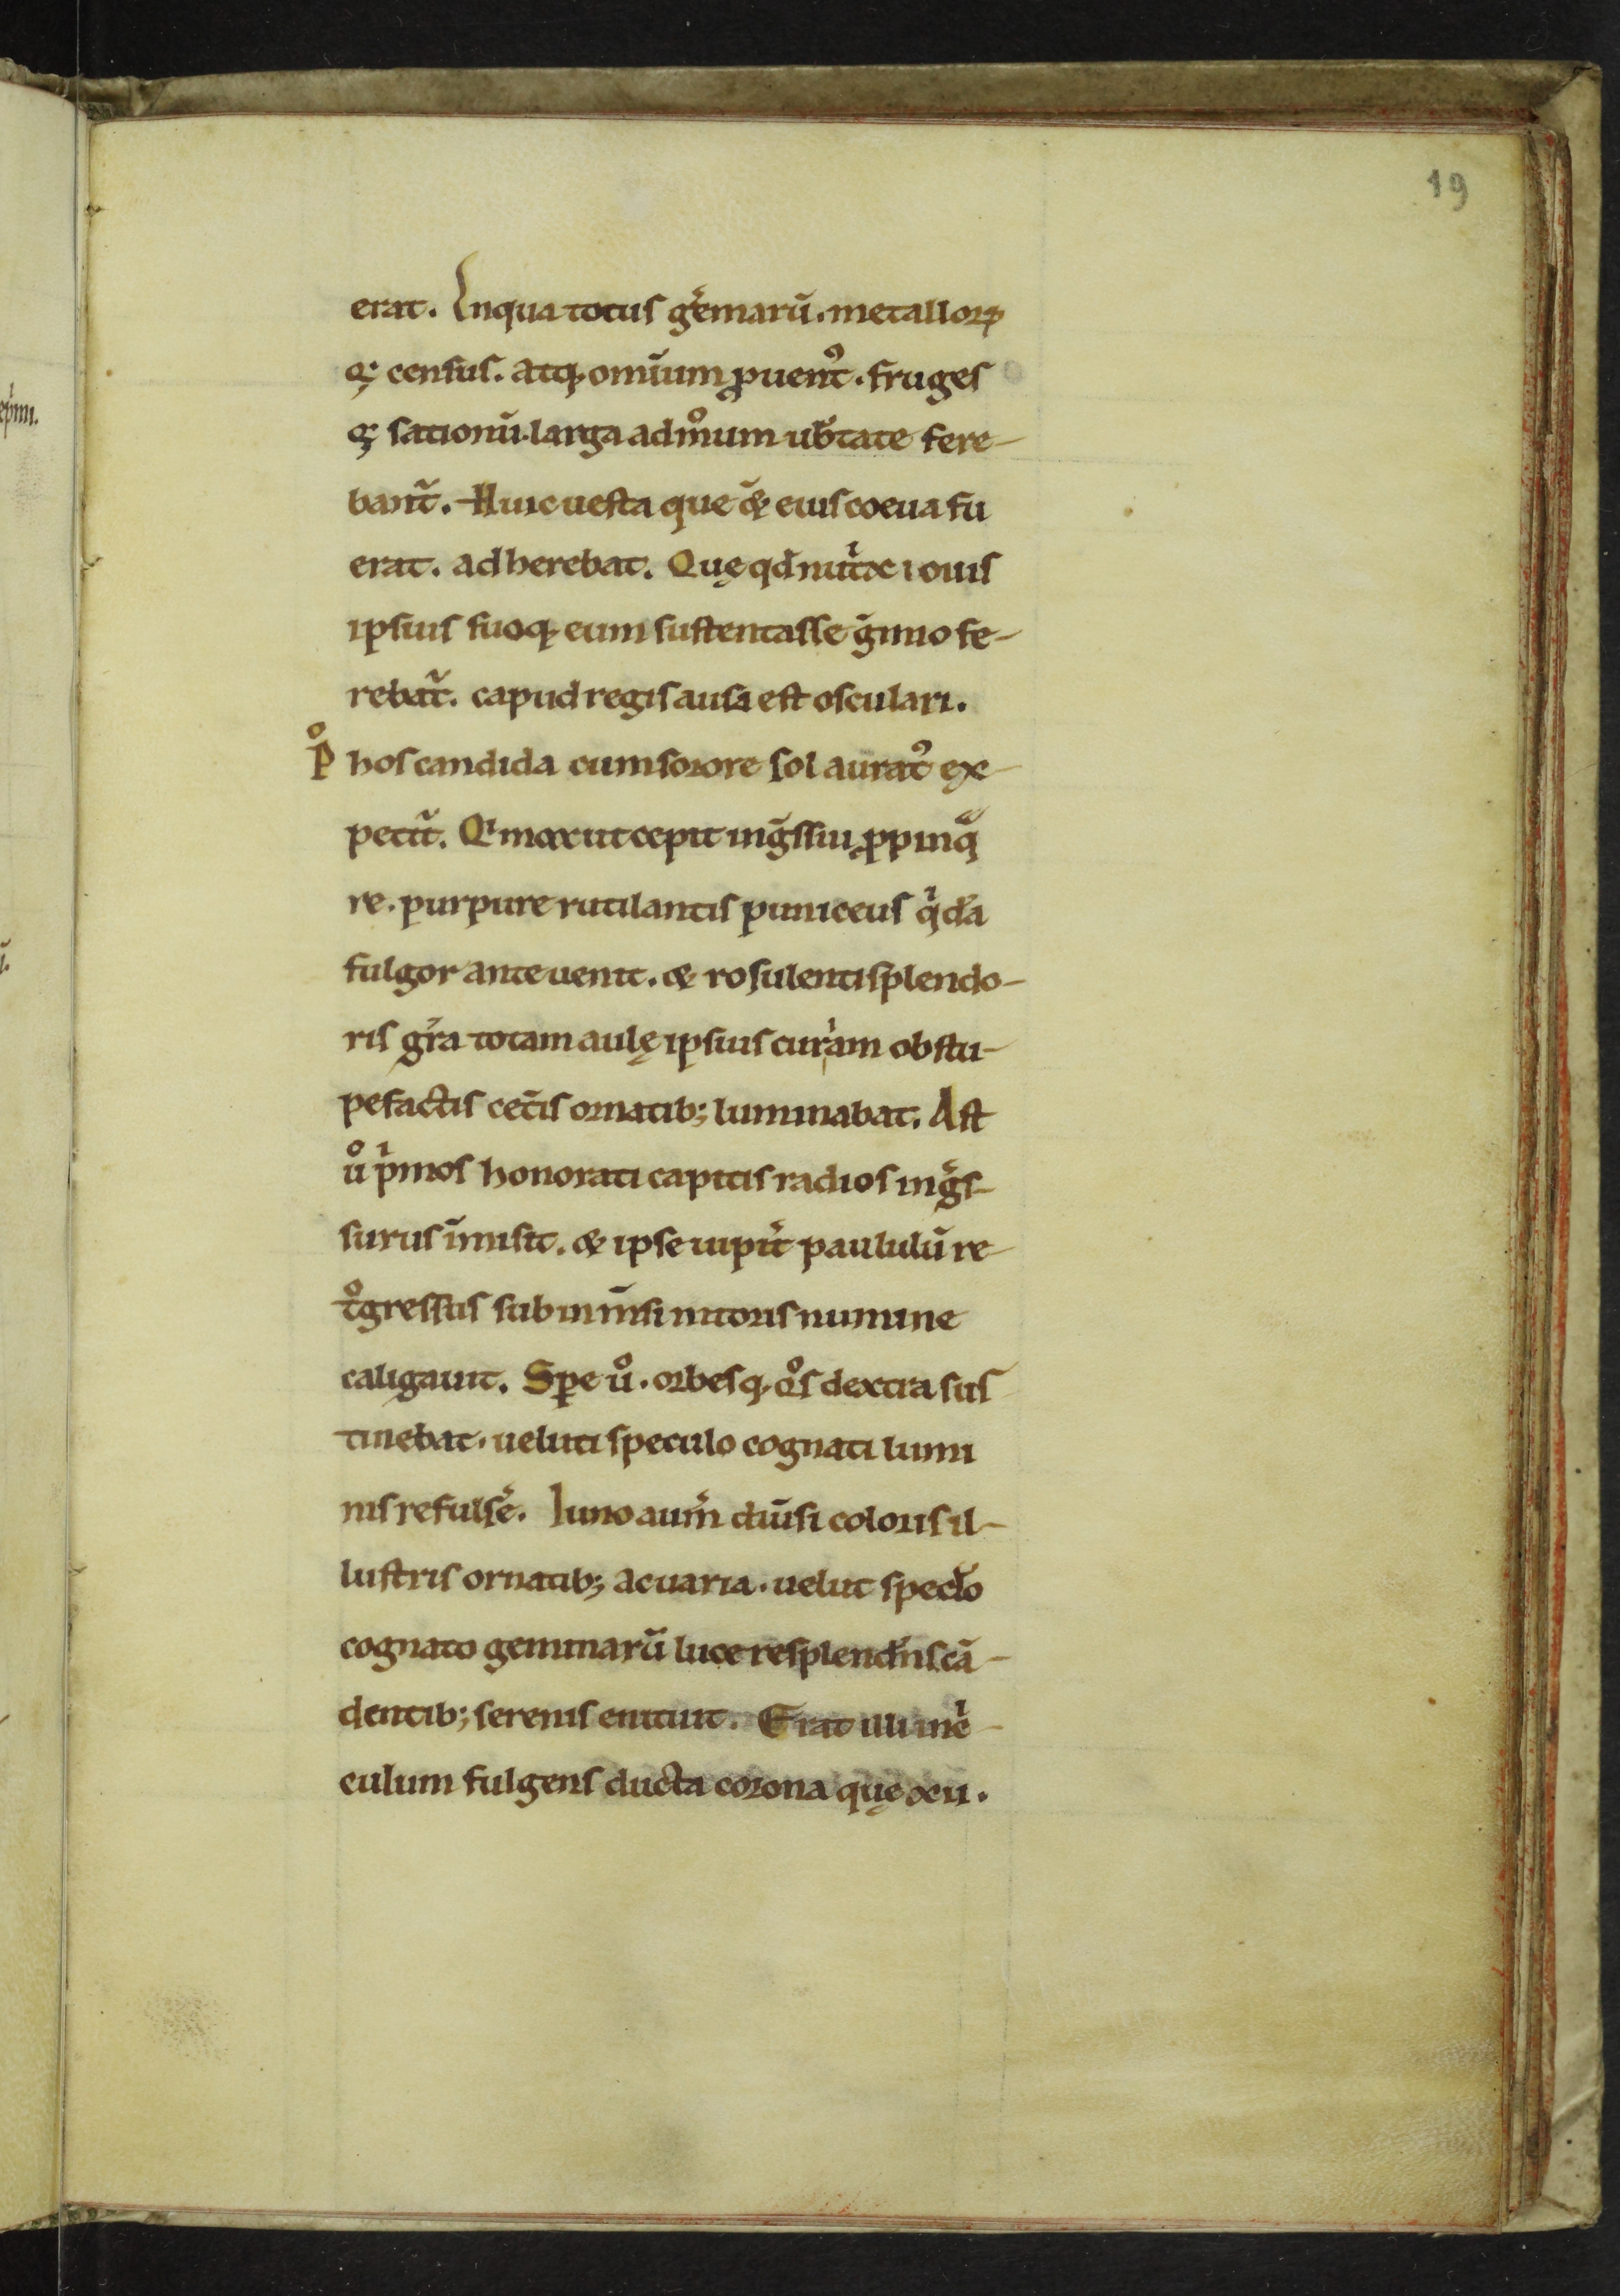 19
erat. Inqua totus gēmarū. metalloꝝ
qꝫ census. atqꝫ omīum ꝓuentꝰ. fruges
qꝫ sationū. larga admͦum ub̄tate fere-
bant᷑. Huic uesta que & eius coeua fu
erat. adherebat. Quę qd̄ nut̍x iouis
ipsius suoqꝫ eum sustentasse g̃mio fe-
rebat᷑. capud regis ausa est osculari.
Pͦ hos candida cum sorore sol auratꝰ ex-
petit᷑. Qͥ mox ut cepit ing̃ssui ꝓpinqͣ
re. purpure rutilantis puniceus qͥdā
fulgor anteuenit. & rosulenti splendo-
ris gr̄a totam aulę ipsius curͥam obstu-
pefactis cet̃is ornatib; luminabat. Ast
uͦ pͥmos honorati capitis radios ing̃s-
surus īmisit. & ipse iupit̃ paululū re-
tͦgressus sub inm̄si nitoris numine
caligauit. Sꝑe uͦ. orbesqꝫ qͦs dextra sus
tinebat. ueluti speculo cognati lumi
nis refulsē. Iuno aut̃m diūsi coloris il-
lustris ornatib; ac uaria. uelut spec̄lo
cognato gemmarū luce resplend̃nscā-
dentib; serenis enituit. Erat illi inͥe-
culum fulgens ducta corona quę xii.